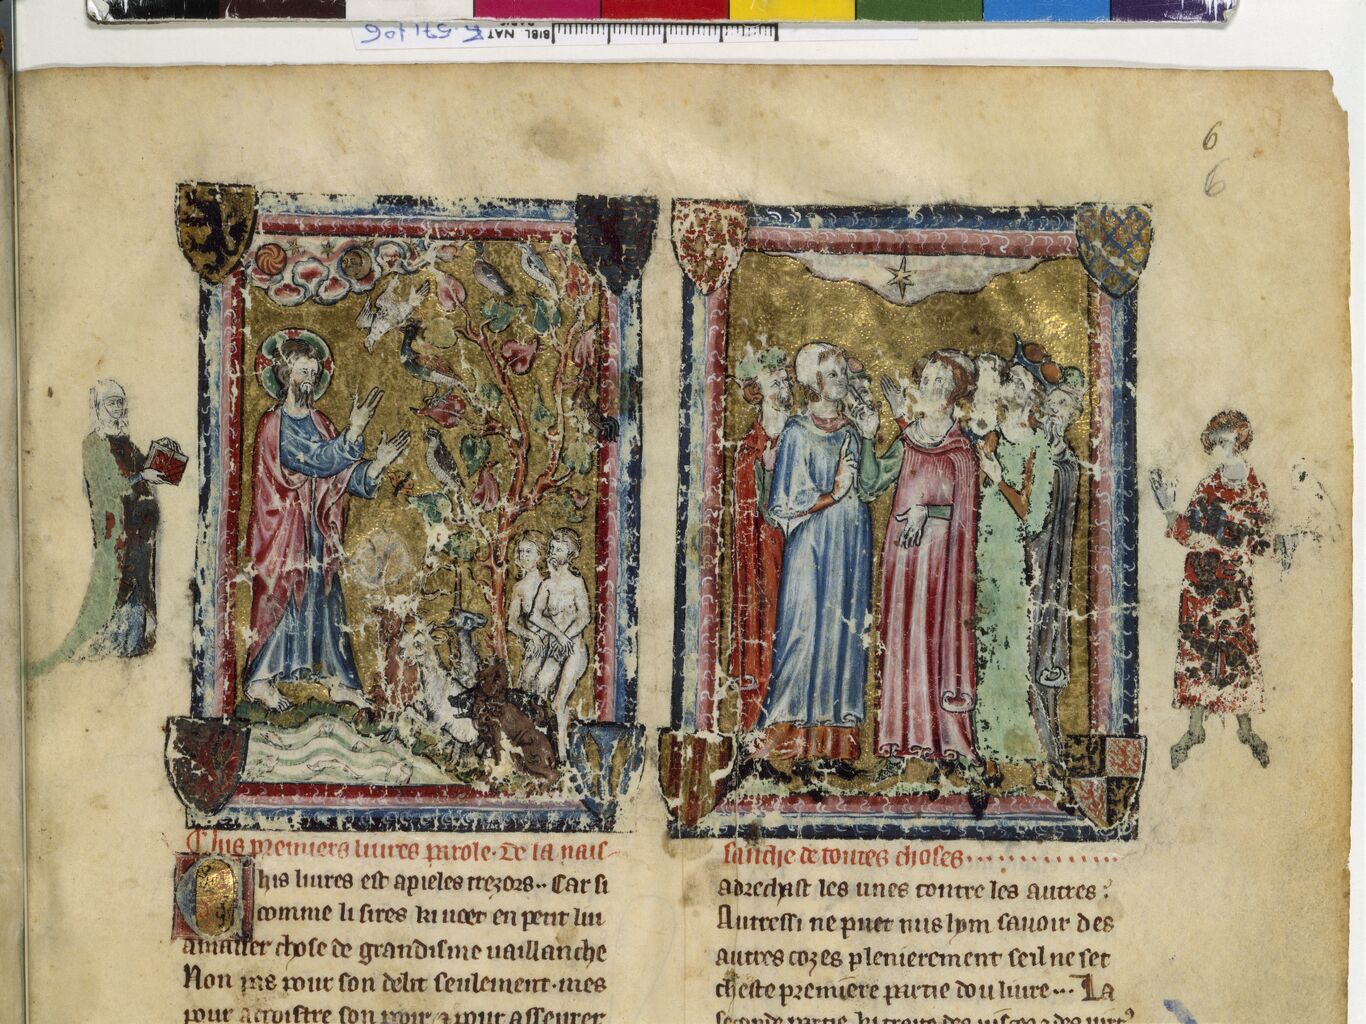 BIBL. NAT.
R. 571406
6
6
Chis premiers liures parole. De la nais-
sanche de toutes choses
Chis liures est apieles trezors.. Car si
comme li sires ki uoet en petit liu
amasser chose de grandisme uaillanche
Non pas pour son delit seulement. mes
pour acroistre son pooir ⁊ pour asseurer
adrechast les unes contre les autres :
Autressi ne puet nus hom sauoir des
autres cozes plenierement se il ne set
cheste premiere partie dou liure... La
seconde partie ki traite des uisces ⁊ des uirt⁹